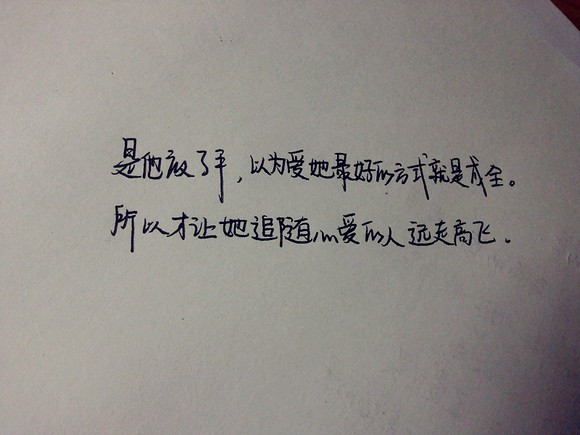 是他放了手，以为爱她最好的方式就是成全。
所以才让她追随心爱的人远走高飞.